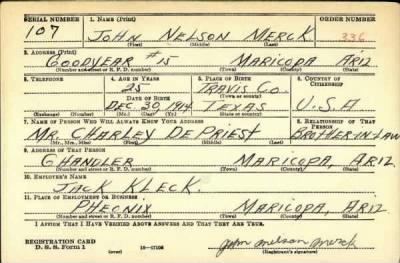 SERIAL NUMBER 1. NAME (Print) ORDER NUMBER
107 JOHN NELSON MERCK 336
(First) (Middle) (Last)
2. ADDRESS (Print)
GOODYEAR #15 MARICOPA ARIZ
(Number and street or R. F. D. number) (Town) (County) (State)
3. TELEPHONE 4. AGE IN YEARS 5. PLACE OF BIRTH 6. COUNTRY OF CITIZENSHIP
25 TRAVIS CO.
DATE OF BIRTH (Town or county)
DEC. 30, 1914 TEXAS U.S.A
(Exchange) (Number) (Mo.) (Day) (Yr.) (State or country)
7. NAME OF PERSON WHO WILL ALWAYS KNOW YOUR ADDRESS 8. RELATIONSHIP OF THAT PERSON
MR. CHARLEY DEPRIEST BROTHER-IN-LAW
(Mr., Mrs., Miss) (First) (Middle) (Last)
9. ADDRESS OF THAT PERSON
CHANDLER MARICOPA, ARIZ
(Number and street or R. F. D. number) (Town) (County) (State)
10. EMPLOYER'S NAME
JACK KLECK.
11. PLACE OF EMPLOYMENT OR BUSINESS
PHECNIX MARICOPA, ARIZ
(Number and street or R. F. D. number) (Town) (County) (State)
I AFFIRM THAT I HAVE VERIFIED ABOVE ANSWERS AND THAT THEY ARE TRUE.
REGISTRATION CARD
D. S. S. Form 1 16-17105 John Nelson Merck
(Registrant's signature)